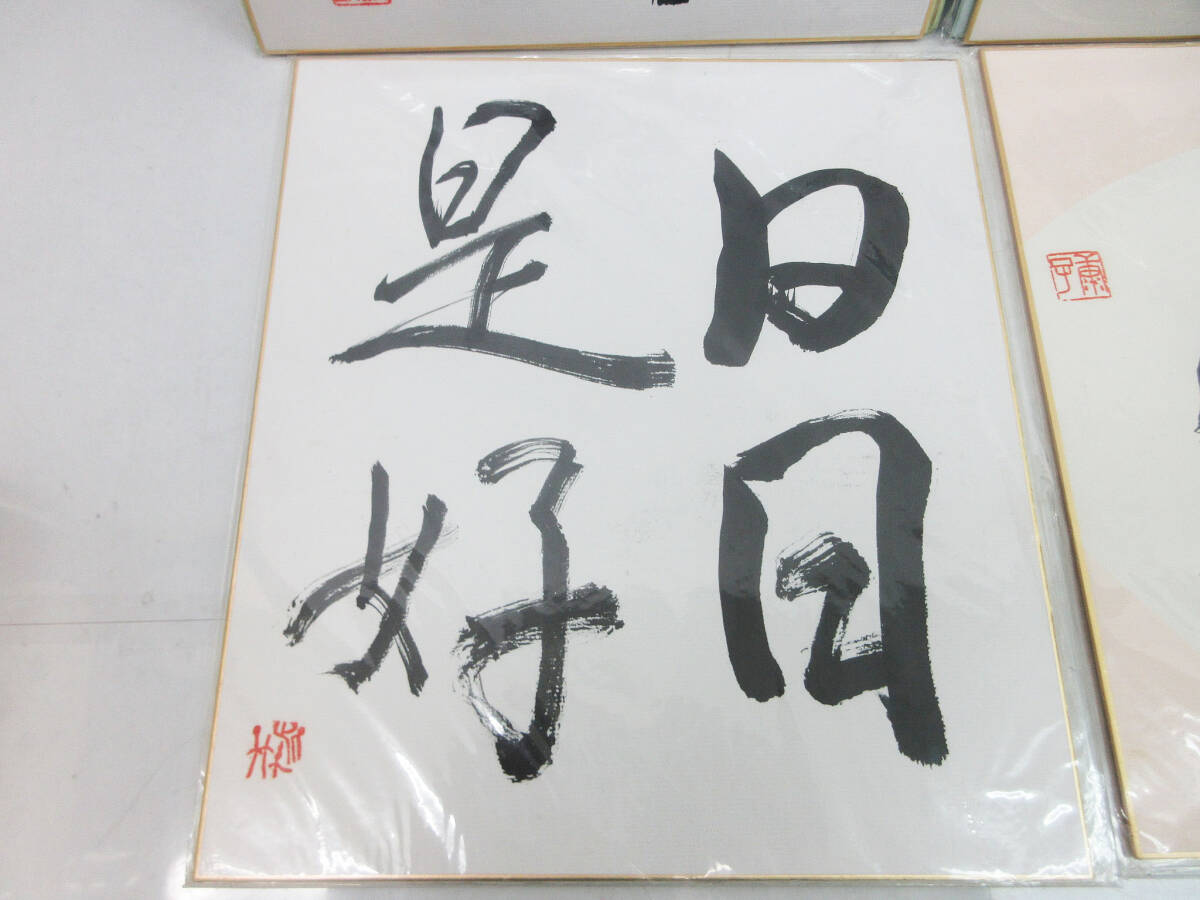 日日
是好